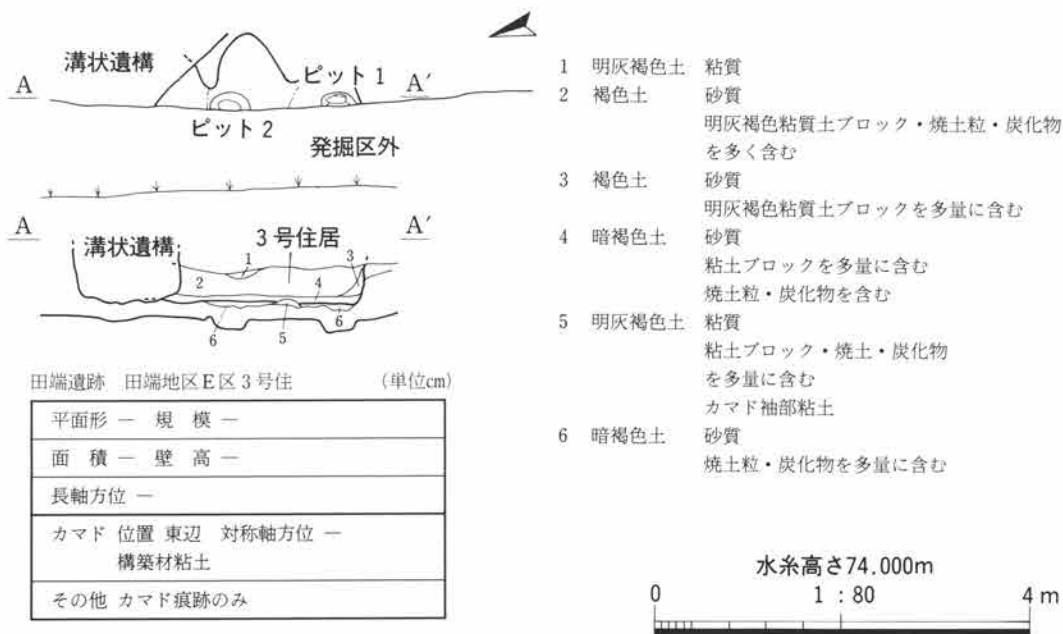 溝状遺構
A
ピット1
A′
ピット2
発掘区外
A
A′
溝状遺構
3号住居
1
2
3
4
5
6
6
田端遺跡 田端地区E区3号住 (単位cm)
平面形 ー 規 模 ー
面 積 ー 壁 高 ー
長軸方位 ー
カマド 位置 東辺 対称軸方位 ー
構築材粘土
その他 カマド痕跡のみ
1 明灰褐色土 粘質
2 褐色土 砂質
明灰褐色粘質土ブロック・焼土粒・炭化物
を多く含む
3 褐色土 砂質
明灰褐色粘質土ブロックを多量に含む
4 暗褐色土 砂質
粘土ブロックを多量に含む
焼土粒・炭化物を含む
5 明灰褐色土 粘質
粘土ブロック・焼土・炭化物
を多量に含む
カマド袖部粘土
6 暗褐色土 砂質
焼土粒・炭化物を多量に含む
水糸高さ74.000m
0 1:80 4m